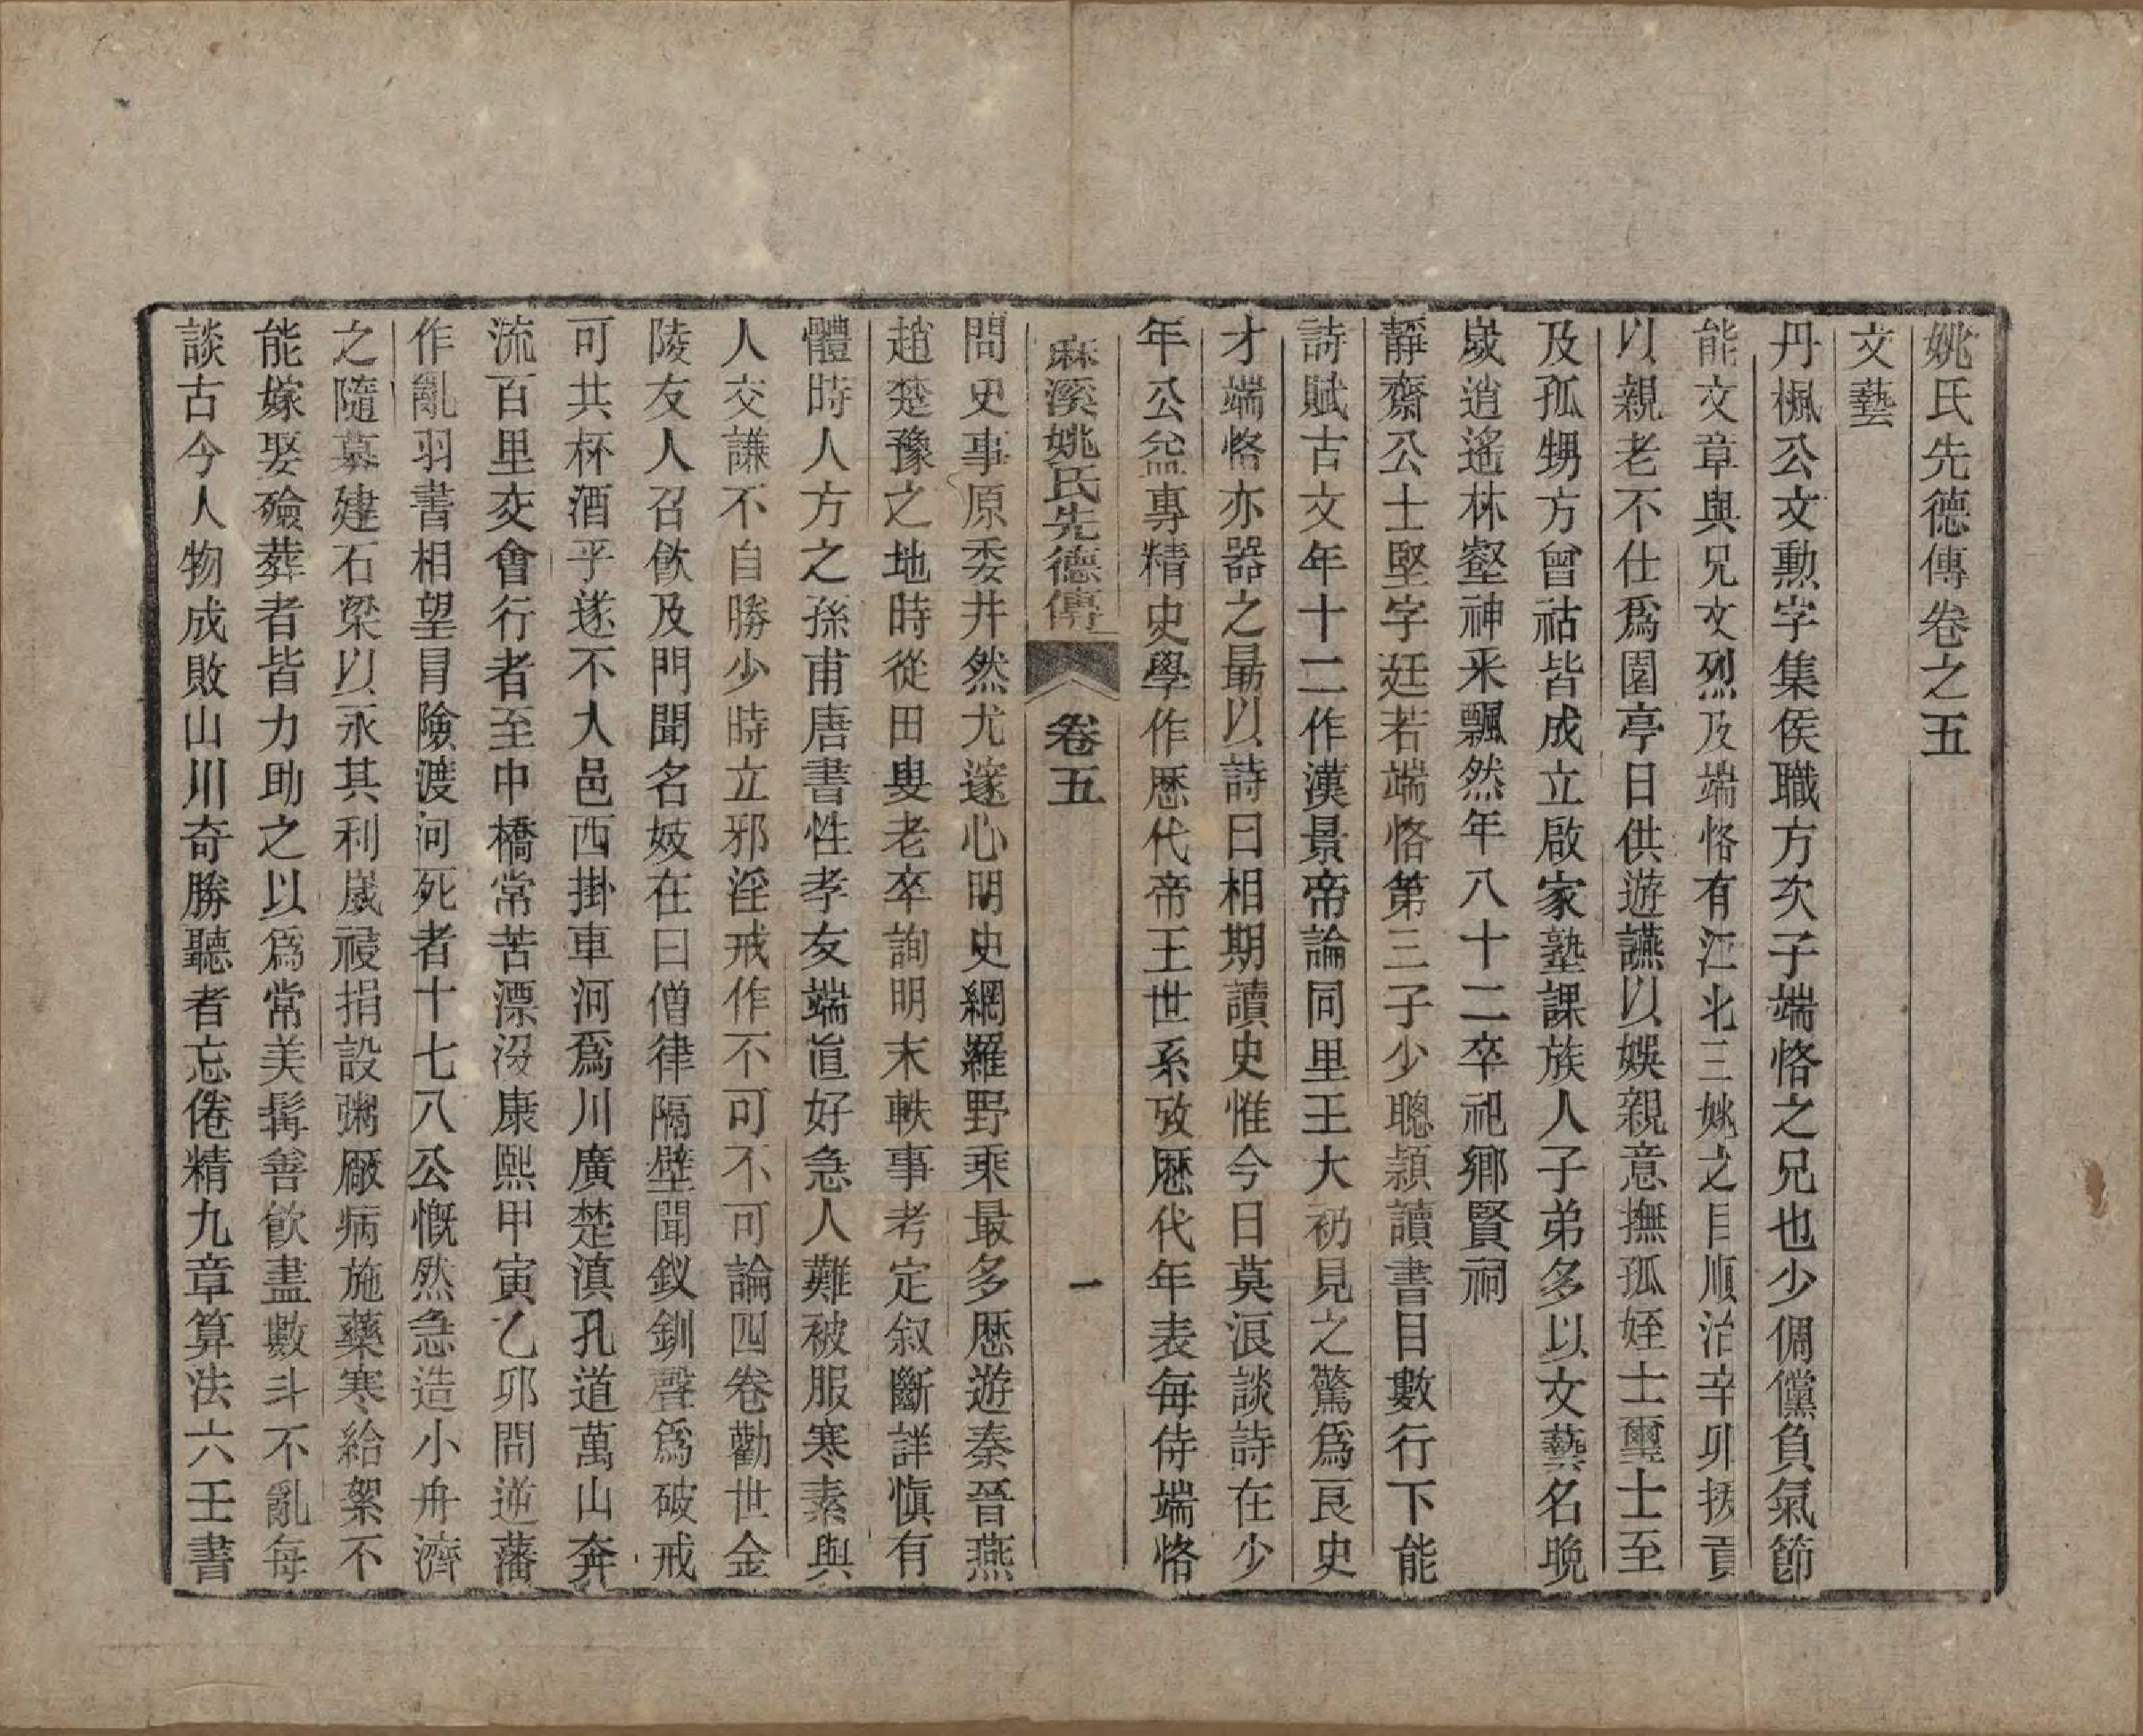 姚氏先德傳卷之五
文藝
丹楓公文勳字集侯職方次子端恪之兄也少倜儻負氣節
能文章與兄文烈及端恪有江北三姚之目順治辛卯拔貢
以親老不仕爲園亭日供遊讌以娛親意撫孤姪士壐士至
及孤甥方曾祜皆成立啟家塾課族人子弟多以文藝名晩
歲逍遙林壑神采飄然年八十二卒祀鄉賢祠
靜齋公士堅字廷若端恪第三子少聰頴讀書目數行下能
詩賦古文年十二作漢景帝論同里王大礽見之驚爲良史
才端恪亦器之最以詩曰相期讀史惟今日莫浪談詩在少
年公益專精史學作歷代帝王世系攷歷代年表每侍端恪
麻溪姚氏先德傳 卷五 一
問史事原委井然尤邃心明史網羅野乘最多歷遊秦晉燕
趙楚豫之地時從田叟老卒詢明末軼事考定叙斷詳愼有
體時人方之孫甫唐書性孝友端直好急人難被服寒素與
人交謙不自勝少時立邪淫戒作不可不可論四卷勸世金
陵友人召飲及門聞名妓在曰僧律隔壁聞釵釧聲爲破戒
可共杯酒乎遂不入邑西掛車河爲川廣楚滇孔道萬山奔
流百里交會行者至中橋常苦漂沒康熙甲寅乙卯間逆藩
作亂羽書相望冒險渡河死者十七八公慨然急造小舟濟
之隨募建石梁以永其利嵗祲捐設粥厰病施藥寒給絮不
能嫁娶殮葬者皆力助之以爲常美髯善飮盡數斗不亂每
談古今人物成敗山川奇勝聽者忘倦精九章算法六壬書